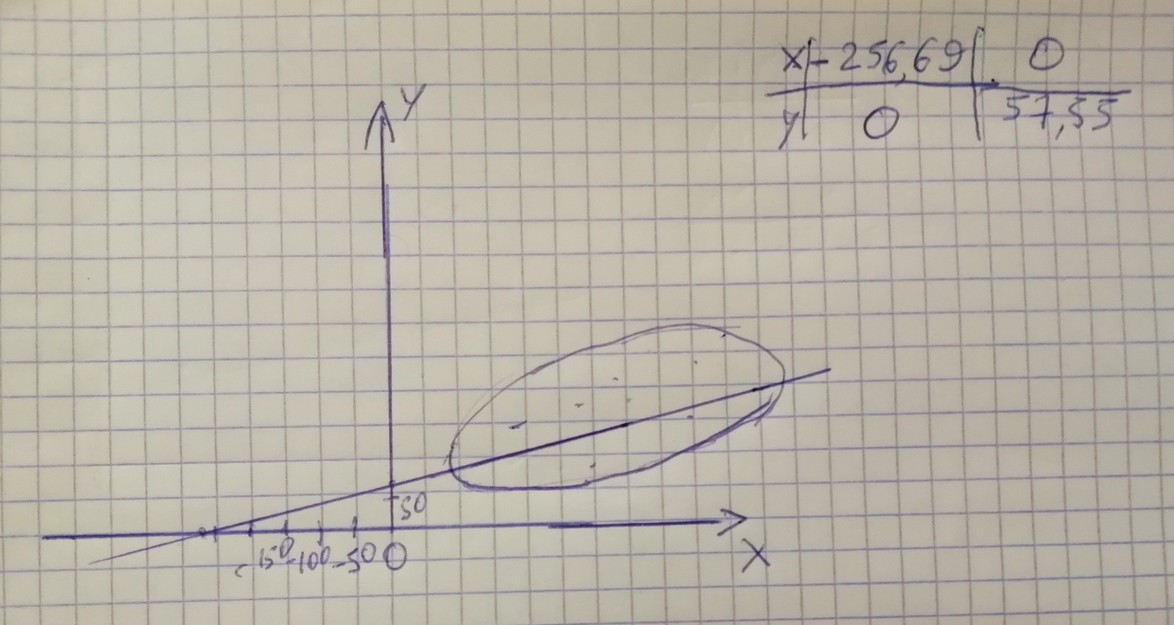 x | -256,69 | 0
y | 0 | 57,55
y
50
-150 -100 -50 0
x